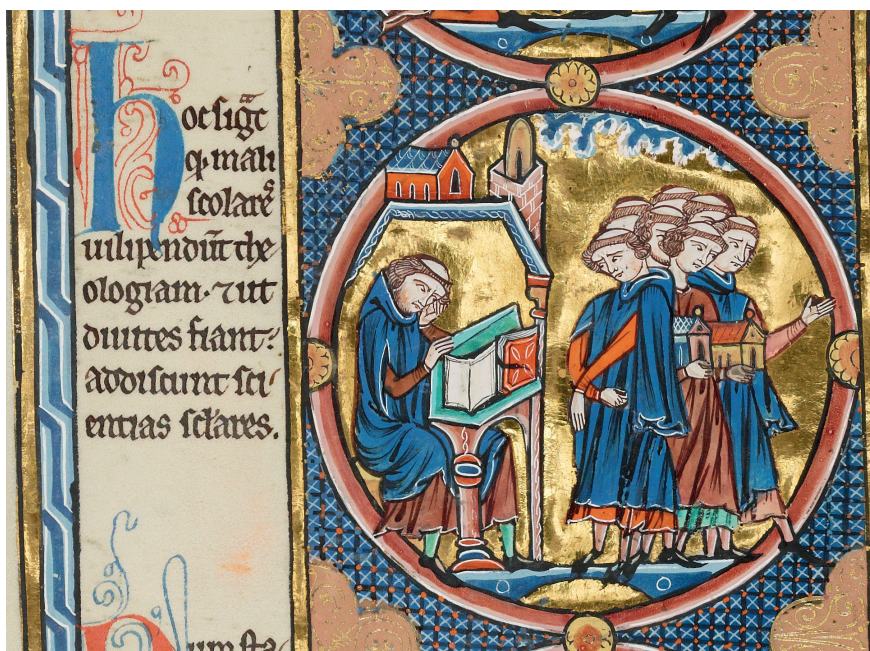 hoc sigᷓt
ꝙ mali
scolareꝰ
uilipendūt the
ologiam · ⁊ ut
diuites fiant:
addiscunt sci
entias scłares.